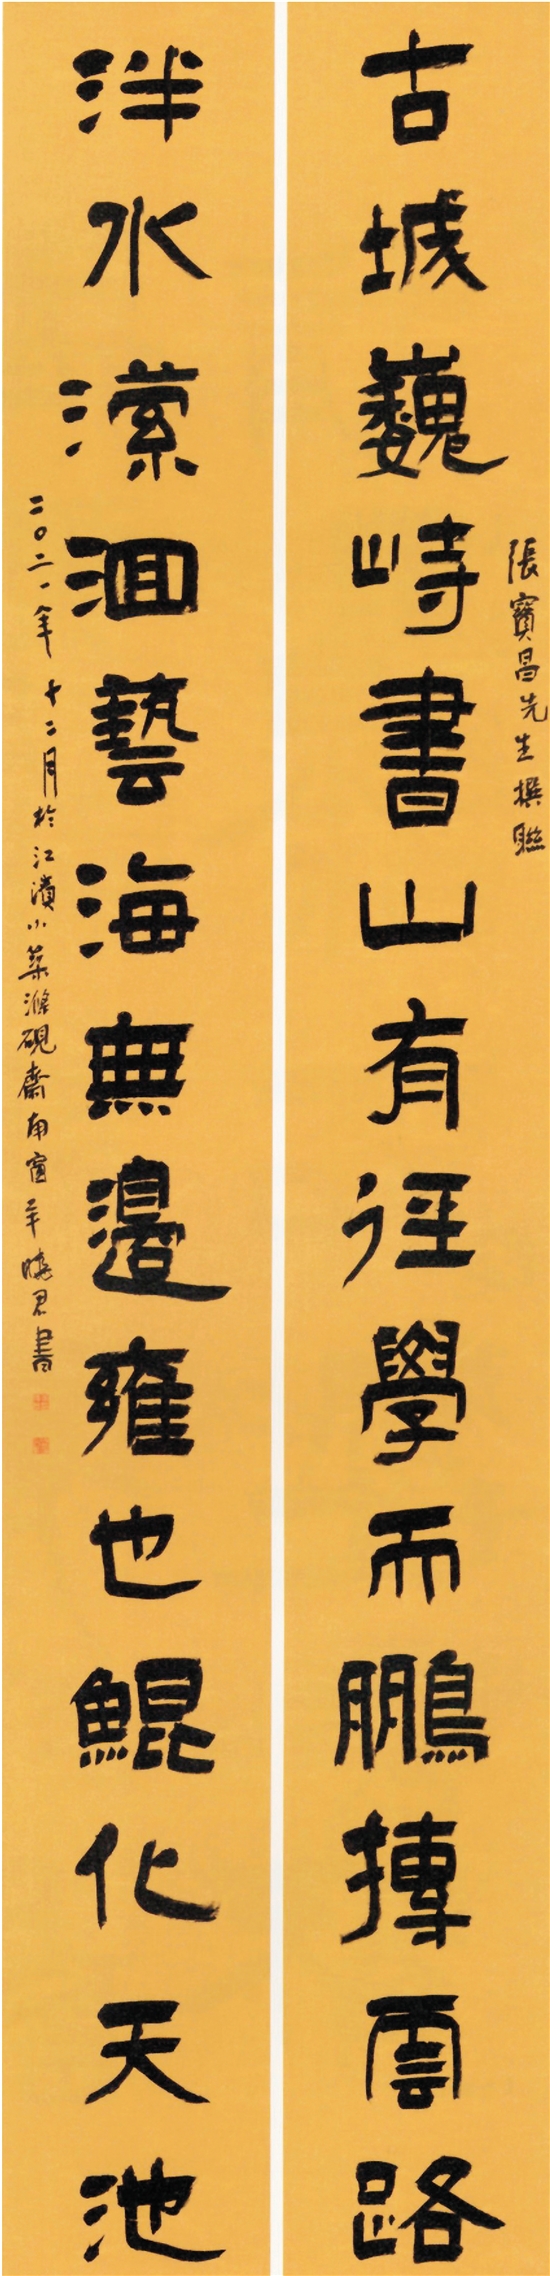 張寶昌先生撰聯
古城巍峙書山有徑學而鵬摶雲路
泮水瀠洄藝海無邊雍也鯤化天池
二〇二一年十二月於江濱小築滌硯齋南窗年曉君書